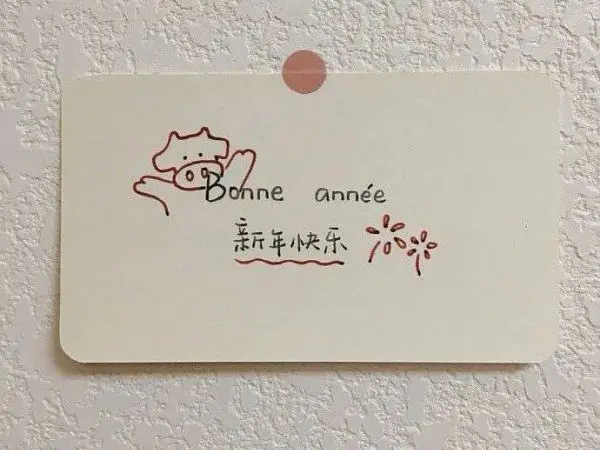 Bonne année
新年快乐